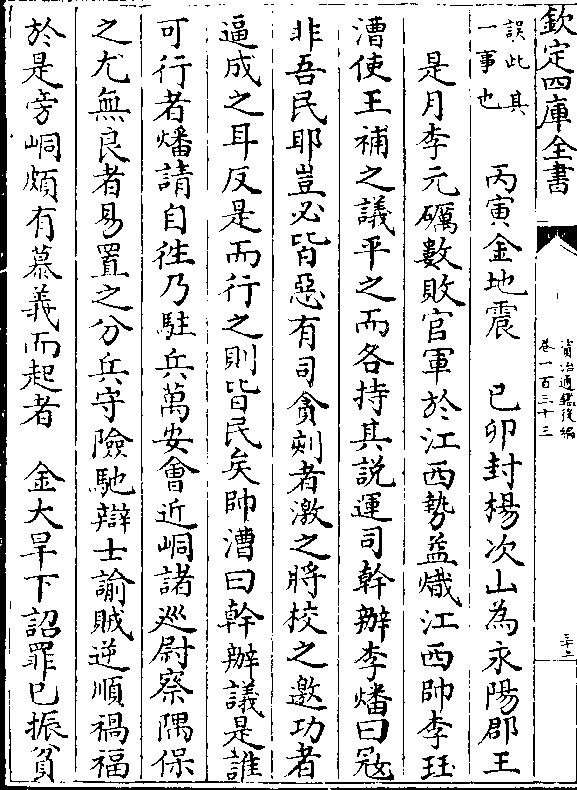 欽定四庫全書
資治通鑑後編
卷一百三十三
三十三
誤此其
一事也
丙寅金地震　己卯封楊次山為永陽郡王
是月李元礪數敗官軍於江西勢益熾江西帥李珏
漕使王補之議平之而各持其説運司幹辦李燔曰㓂
非吾民耶豈必皆惡有司貪刻者激之將校之邀功者
逼成之耳反是而行之則皆民矣帥漕曰幹辦議是誰
可行者燔請自徃乃駐兵萬安會近峒諸廵尉察隅保
之尤無良者易置之分兵守險馳辯士諭賊逆順禍福
於是旁峒頗有慕義而起者　金大旱下詔罪己振貧